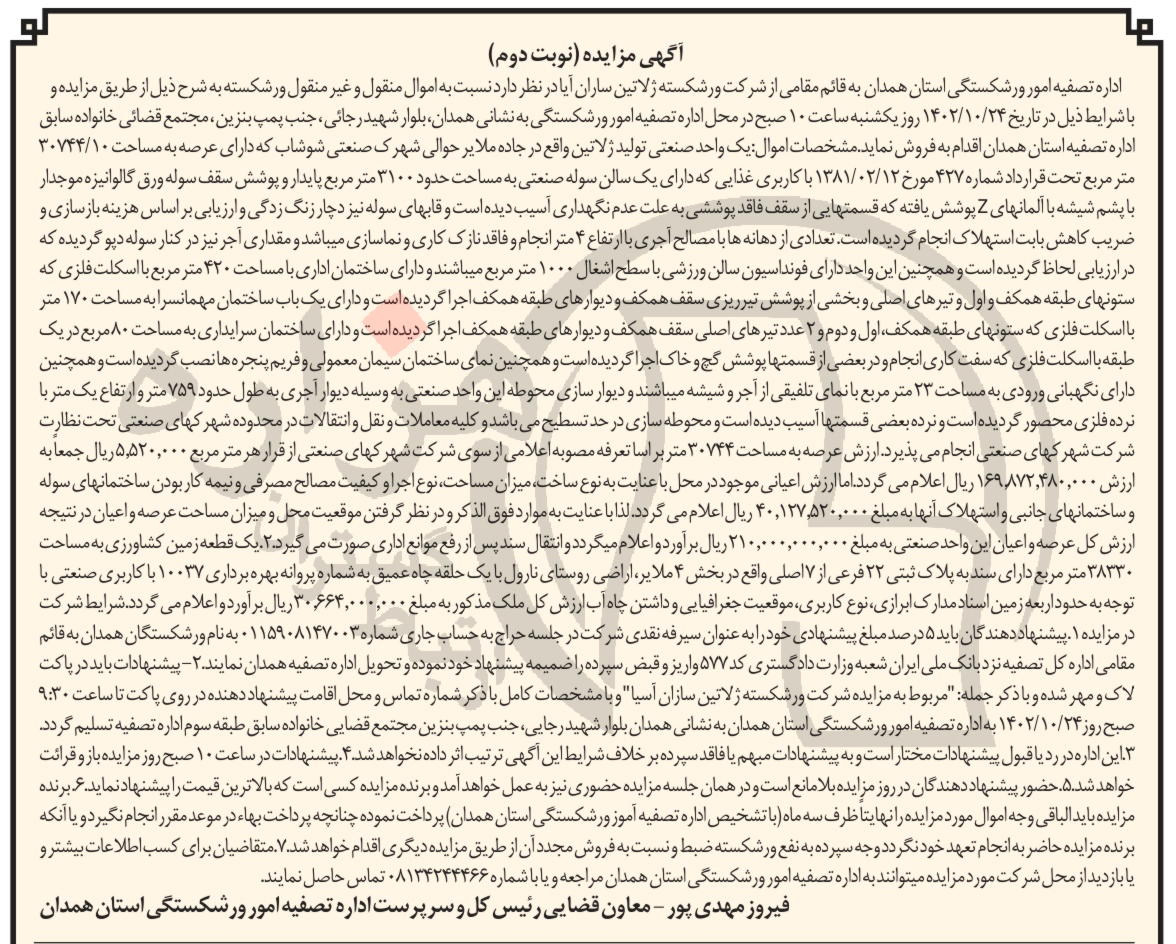 آگهی مزایده (نوبت دوم)
اداره تصفیه امور ورشکستگی استان همدان به قائم مقامی از شرکت ورشکسته ژلاتین ساران آیا در نظر دارد نسبت به اموال منقول و غیر منقول ورشکسته به شرح ذیل از طریق مزایده و
با شرایط ذیل در تاریخ ۱۴۰۲/۱۰/۲۴ روز یکشنبه ساعت ۱۰ صبح در محل اداره تصفیه امور ورشکستگی به نشانی همدان، بلوار شهید رجائی، جنب پمپ بنزین، مجتمع قضائی خانواده سابق
اداره تصفیه استان همدان اقدام به فروش نماید. مشخصات اموال: یک واحد صنعتی تولید ژلاتین واقع در جاده ملایر حوالی شهرک صنعتی شوشاب که دارای عرصه به مساحت ۳۰۷۴۴/۱۰
متر مربع تحت قرارداد شماره ۴۲۷ مورخ ۱۳۸۱/۰۲/۱۲ با کاربری غذایی که دارای یک سالن سوله صنعتی به مساحت حدود ۳۱۰۰ متر مربع پایدار و پوشش سقف سوله ورق گالوانیزه موجدار
با پشم شیشه با آلمانهای Z پوشش یافته که قسمتهایی از سقف فاقد پوششی به علت عدم نگهداری آسیب دیده است و قابهای سوله نیز دچار زنگ زدگی و ارزیابی بر اساس هزینه بازسازی و
ضریب کاهش بابت استهلاک انجام گردیده است. تعدادی از دهانه ها با مصالح آجری با ارتفاع ۴ متر انجام و فاقد نازک کاری و نماسازی میباشد و مقداری آجر نیز در کنار سوله دپو گردیده که
در ارزیابی لحاظ گردیده است و همچنین این واحد دارای فونداسیون سالن ورزشی با سطح اشغال ۱۰۰۰ متر مربع میباشند و دارای ساختمان اداری با مساحت ۴۲۰ متر مربع با اسکلت فلزی که
ستونهای طبقه همکف و اول و تیرهای اصلی و بخشی از پوشش تیرریزی سقف همکف و دیوارهای طبقه همکف اجرا گردیده است و دارای یک باب ساختمان مهمانسرا به مساحت ۱۷۰ متر
با اسکلت فلزی که ستونهای طبقه همکف، اول و دوم و ۲ عدد تیرهای اصلی سقف همکف و دیوارهای طبقه همکف اجرا گردیده است و دارای ساختمان سرایداری به مساحت ۸۰ مربع در یک
طبقه با اسکلت فلزی که سفت کاری انجام و در بعضی از قسمتها پوشش گچ و خاک اجرا گردیده است و همچنین نمای ساختمان سیمان معمولی و فریم پنجره ها نصب گردیده است و همچنین
دارای نگهبانی ورودی به مساحت ۲۳ متر مربع با نمای تلفیقی از آجر و شیشه میباشند و دیوار سازی محوطه این واحد صنعتی به وسیله دیوار آجری به طول حدود ۷۵۹ متر و ارتفاع یک متر با
نرده فلزی محصور گردیده است و نرده بعضی قسمتها آسیب دیده است و محوطه سازی در حد تسطیح می باشد و کلیه معاملات و نقل و انتقالات در محدوده شهرکهای صنعتی تحت نظارت
شرکت شهرکهای صنعتی انجام می پذیرد. ارزش عرصه به مساحت ۳۰۷۴۴ متر بر اساس تعرفه مصوبه اعلامی از سوی شرکت شهرکهای صنعتی از قرار هر متر مربع ۵,۵۲۰,۰۰۰ ریال جمعاً به
ارزش ۱۶۹,۸۷۲,۴۸۰,۰۰۰ ریال اعلام می گردد. اما ارزش اعیانی موجود در محل با عنایت به نوع ساخت، میزان مساحت، نوع اجرا و کیفیت مصالح مصرفی و نیمه کار بودن ساختمانهای سوله
و ساختمانهای جانبی و استهلاک آنها به مبلغ ۴۰,۱۲۷,۵۲۰,۰۰۰ ریال اعلام می گردد. لذا با عنایت به موارد فوق الذکر و در نظر گرفتن موقعیت محل و میزان مساحت عرصه و اعیان در نتیجه
ارزش کل عرصه و اعیان این واحد صنعتی به مبلغ ۲۱۰,۰۰۰,۰۰۰,۰۰۰ ریال برآورد و اعلام میگردد و انتقال سند پس از رفع موانع اداری صورت می گیرد. ۲. یک قطعه زمین کشاورزی به مساحت
۳۸۳۳۰ متر مربع دارای سند به پلاک ثبتی ۲۲ فرعی از ۷ اصلی واقع در بخش ۴ ملایر، اراضی روستای نارول با یک حلقه چاه عمیق به شماره پروانه بهره برداری ۱۰۰۳۷ با کاربری صنعتی با
توجه به حدود اربعه زمین اسناد مدارک ابرازی، نوع کاربری، موقعیت جغرافیایی و داشتن چاه آب ارزش کل ملک مذکور به مبلغ ۳۰,۶۶۴,۰۰۰,۰۰۰ ریال برآورد و اعلام می گردد. شرایط شرکت
در مزایده ۱. پیشنهاد دهندگان باید ۵ درصد مبلغ پیشنهادی خود را به عنوان سپرفه نقدی شرکت در جلسه حراج به حساب جاری شماره ۰۱۱۵۹۰۸۱۴۷۰۰۳ به نام ورشکستگان همدان به قائم
مقامی اداره کل تصفیه نزد بانک ملی ایران شعبه وزارت دادگستری کد ۵۷۷ واریز و قبض سپرده را ضمیمه پیشنهاد خود نموده و تحویل اداره تصفیه همدان نمایند. ۲- پیشنهادات باید در پاکت
لاک و مهر شده و با ذکر جمله: "مربوط به مزایده شرکت ورشکسته ژلاتین سازان آسیا" و با مشخصات کامل با ذکر شماره تماس و محل اقامت پیشنهاد دهنده در روی پاکت تا ساعت ۹:۳۰
صبح روز ۱۴۰۲/۱۰/۲۴ به اداره تصفیه امور ورشکستگی استان همدان به نشانی همدان بلوار شهید رجایی، جنب پمپ بنزین مجتمع قضایی خانواده سابق طبقه سوم اداره تصفیه تسلیم گردد.
۳. این اداره در رد یا قبول پیشنهادات مختار است و به پیشنهادات مبهم یا فاقد سپرده بر خلاف شرایط این آگهی ترتیب اثر داده نخواهد شد. ۴. پیشنهادات در ساعت ۱۰ صبح روز مزایده باز و قرائت
خواهد شد. ۵. حضور پیشنهاد دهندگان در روز مزایده بلامانع است و در همان جلسه مزایده حضوری نیز به عمل خواهد آمد و برنده مزایده کسی است که بالاترین قیمت را پیشنهاد نماید. ۶. برنده
مزایده باید الباقی وجه اموال مورد مزایده را نهایتاً ظرف سه ماه (با تشخیص اداره تصفیه آموز ورشکستگی استان همدان) پرداخت نموده چنانچه پرداخت بهاء در موعد مقرر انجام نگیرد و یا آنکه
برنده مزایده حاضر به انجام تعهد خود نگردد وجه سپرده به نفع ورشکسته ضبط و نسبت به فروش مجدد آن از طریق مزایده دیگری اقدام خواهد شد. ۷. متقاضیان برای کسب اطلاعات بیشتر و
یا بازدید از محل شرکت مورد مزایده میتوانند به اداره تصفیه امور ورشکستگی استان همدان مراجعه و یا با شماره ۰۸۱۳۴۲۴۴۴۶۶ تماس حاصل نمایند.
فیروز مهدی پور - معاون قضایی رئیس کل و سرپرست اداره تصفیه امور ورشکستگی استان همدان